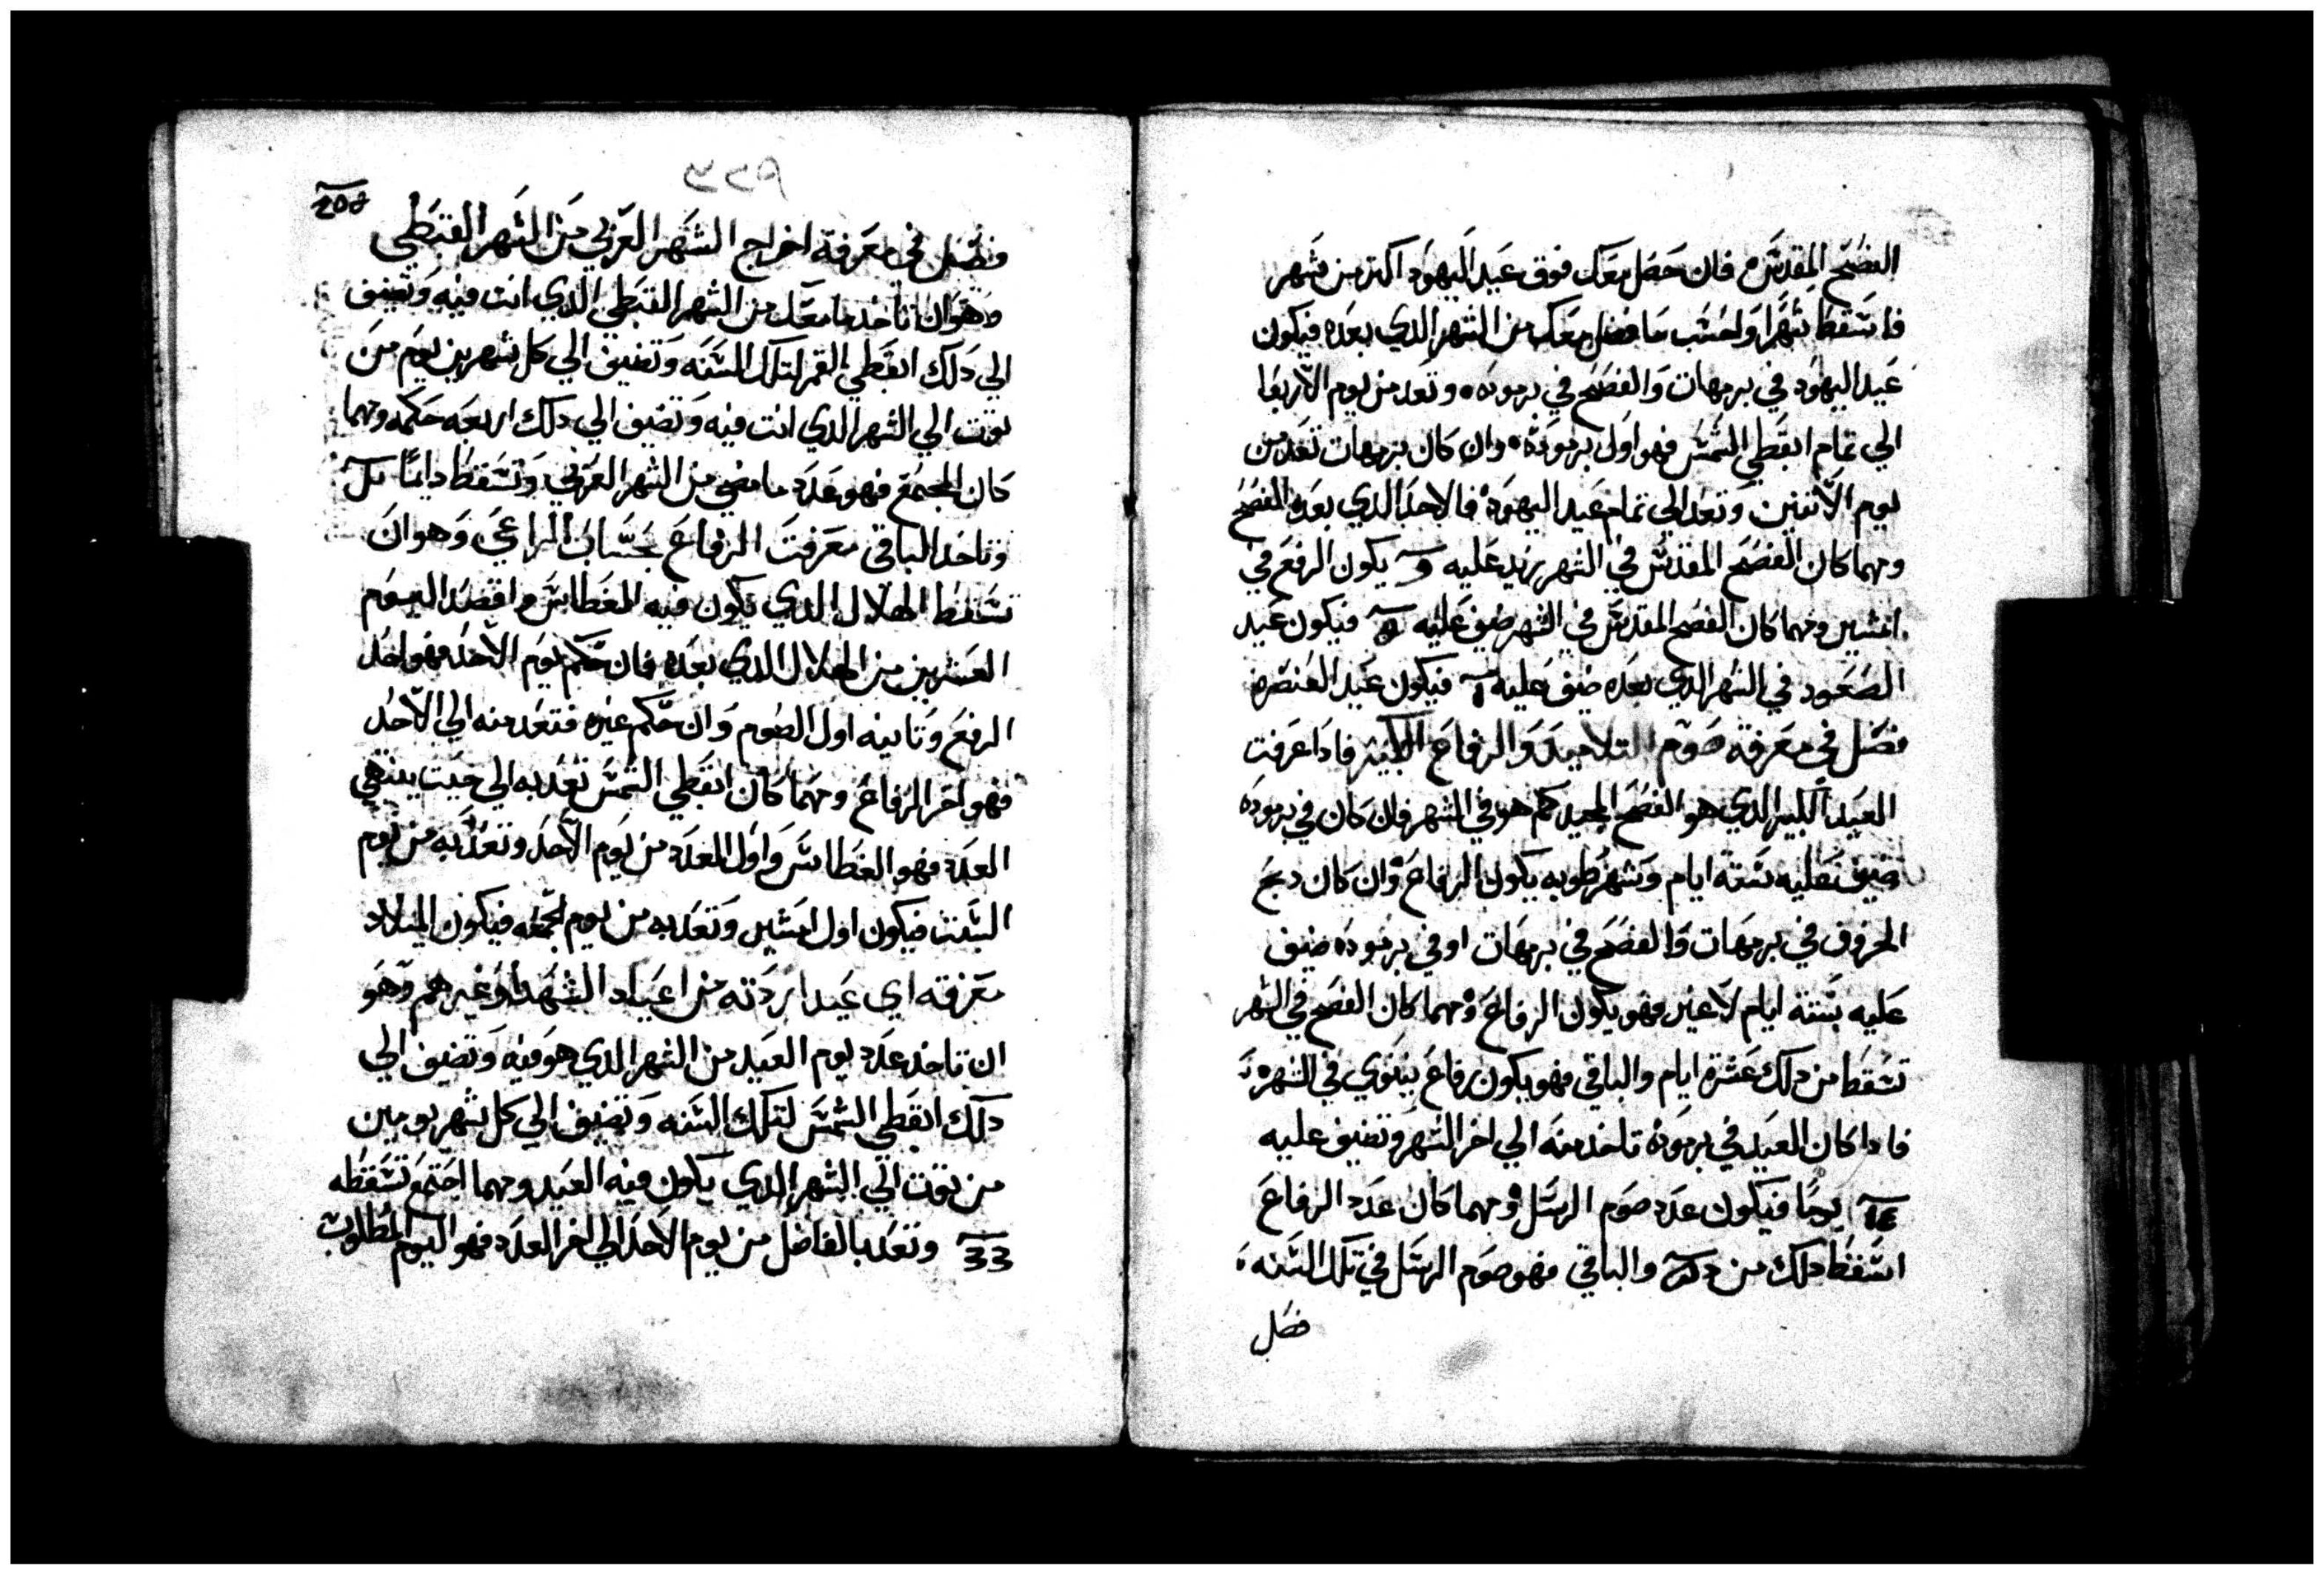 الفصح المقدس فان حصل معك فوق عيد اليهود اكتر من شهر
فاسقط شهرا واحسب ما فضل معك من الشهر الدي بعده فيكون
عيد اليهود في برمهات والفصح في برموده وتعد من يوم الاربعا
الي تمام ابقطي الشمس فهو اول برموده وان كان برمهات تعد من
يوم الاتنين وتعد الي تمام عيد اليهود فالاحد الدي بعده الفصح
ومهما كان الفصح المقدس في الشهر زيد عليه يكون الرفع في
امشير ومهما كان الفصح المقدس في الشهر ضيف عليه فيكون عيد
الصعود في الشهر الدي بعده ضيف عليه فيكون عيد العنصره
فصل في معرفة صوم التلاميد والرفاع الكبير فادا عرفت
العيد الكبير الدي هو الفصح المجيد كم هو في الشهر فان كان في برموده
ضيف عليه ستة ايام وشهر طوبه يكون الرفاع وان كان دبح
الخروف في برمهات والفصح في برمهات او في برموده ضيف
عليه ستة ايام لا غير فهو يكون الرفاع ومهما كان الفصح في الشهر
تسقط من دلك عشرة ايام والباقي فهو يكون رفاع نينوي في الشهر
فادا كان العيد في برموده تاخد منه الي اخر الشهر وتضيف عليه
يوما فيكون عدد صوم الرسل ومهما كان عدد الرفاع
اسقط دلك من والباقي فهو صوم الرسل في تلك السنه
فصل
فصل في معرفة اخراج الشهر العربي من الشهر القبطي
وهو ان تاخد ما معك من الشهر القبطي الدي انت فيه وتضيف
الي دلك ابقطي القمر لتلك السنه وتضيف الي كل شهرين يوم من
توت الي الشهر الدي انت فيه وتضيف الي دلك اربعه حكمه ومهما
كان المجتمع فهو عدد ما مضي من الشهر العربي وتسقط دايما
وتاخد الباقي معرفت الرفاع بحساب الراعي وهو ان
تسقط الهلال الدي يكون فيه الغطاس واقصد اليوم
العشرين من الهلال الدي بعده فان حكم يوم الاحد فهو احد
الرفع وتانيه اول الصوم وان حكم غيره فتعد منه الي الاحد
فهو اخر الرفاع ومهما كان ابقطي الشمس تعد به الي حيت ينتهي
العدد فهو الغطاس واول العدد من يوم الاحد وتعد به من يوم
السبت فيكون اول امشير وتعد به من يوم الجمعه فيكون الميلاد
معرفة اي عيد اردته من اعياد الشهدا وغيرهم وهو
ان تاخد عدد يوم العيد من الشهر الدي هو فيه وتضيف الي
دلك ابقطي الشمس لتلك السنه وتضيف الي كل شهر يومين
من توت الي الشهر الدي يكون فيه العيد ومهما اجتمع تسقطه
وتعد بالفاضل من يوم الاحد الي اخر العدد فهو اليوم المطلوب